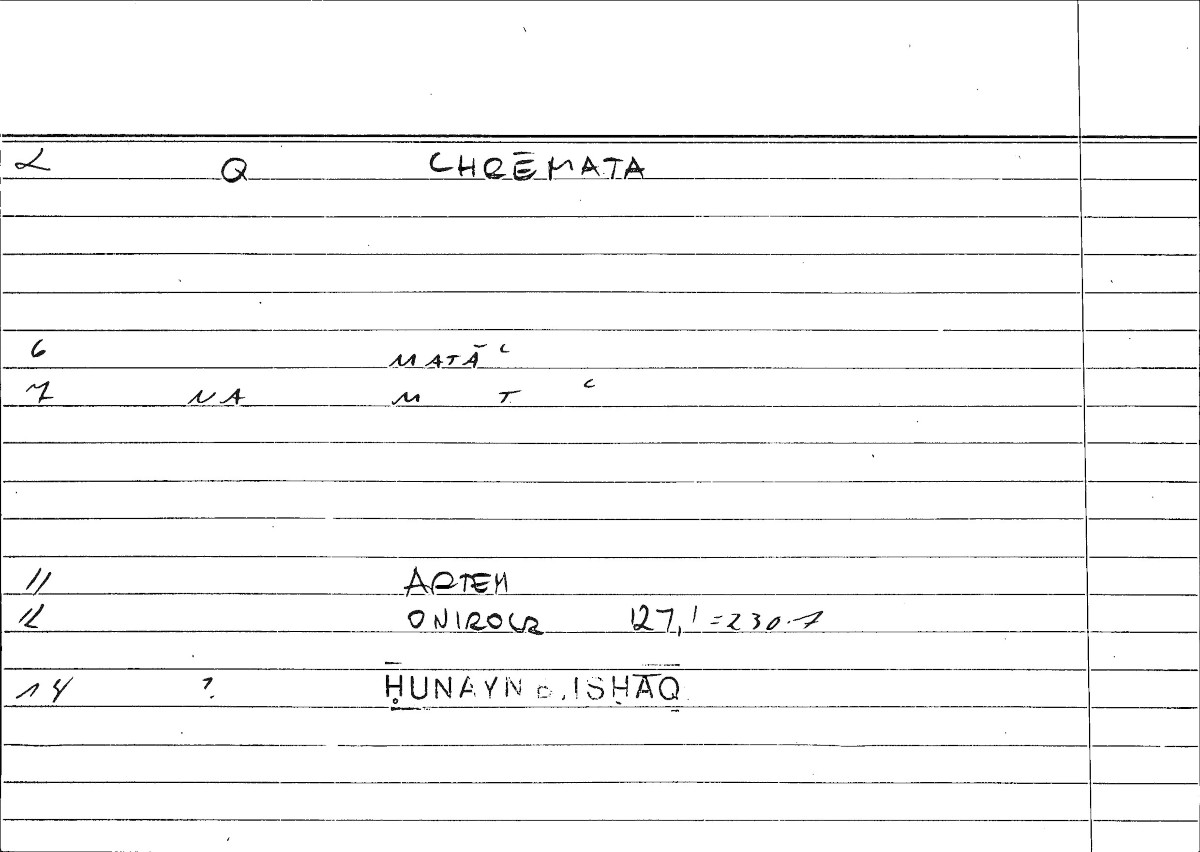 2 Q CHRĒMATA
6 MATĀʿ
7 NA M T ʿ
11 ARTEM
12 ONIROCR 127,1=230.7
14 ?. ḤUNAYN b. ISḤĀQ